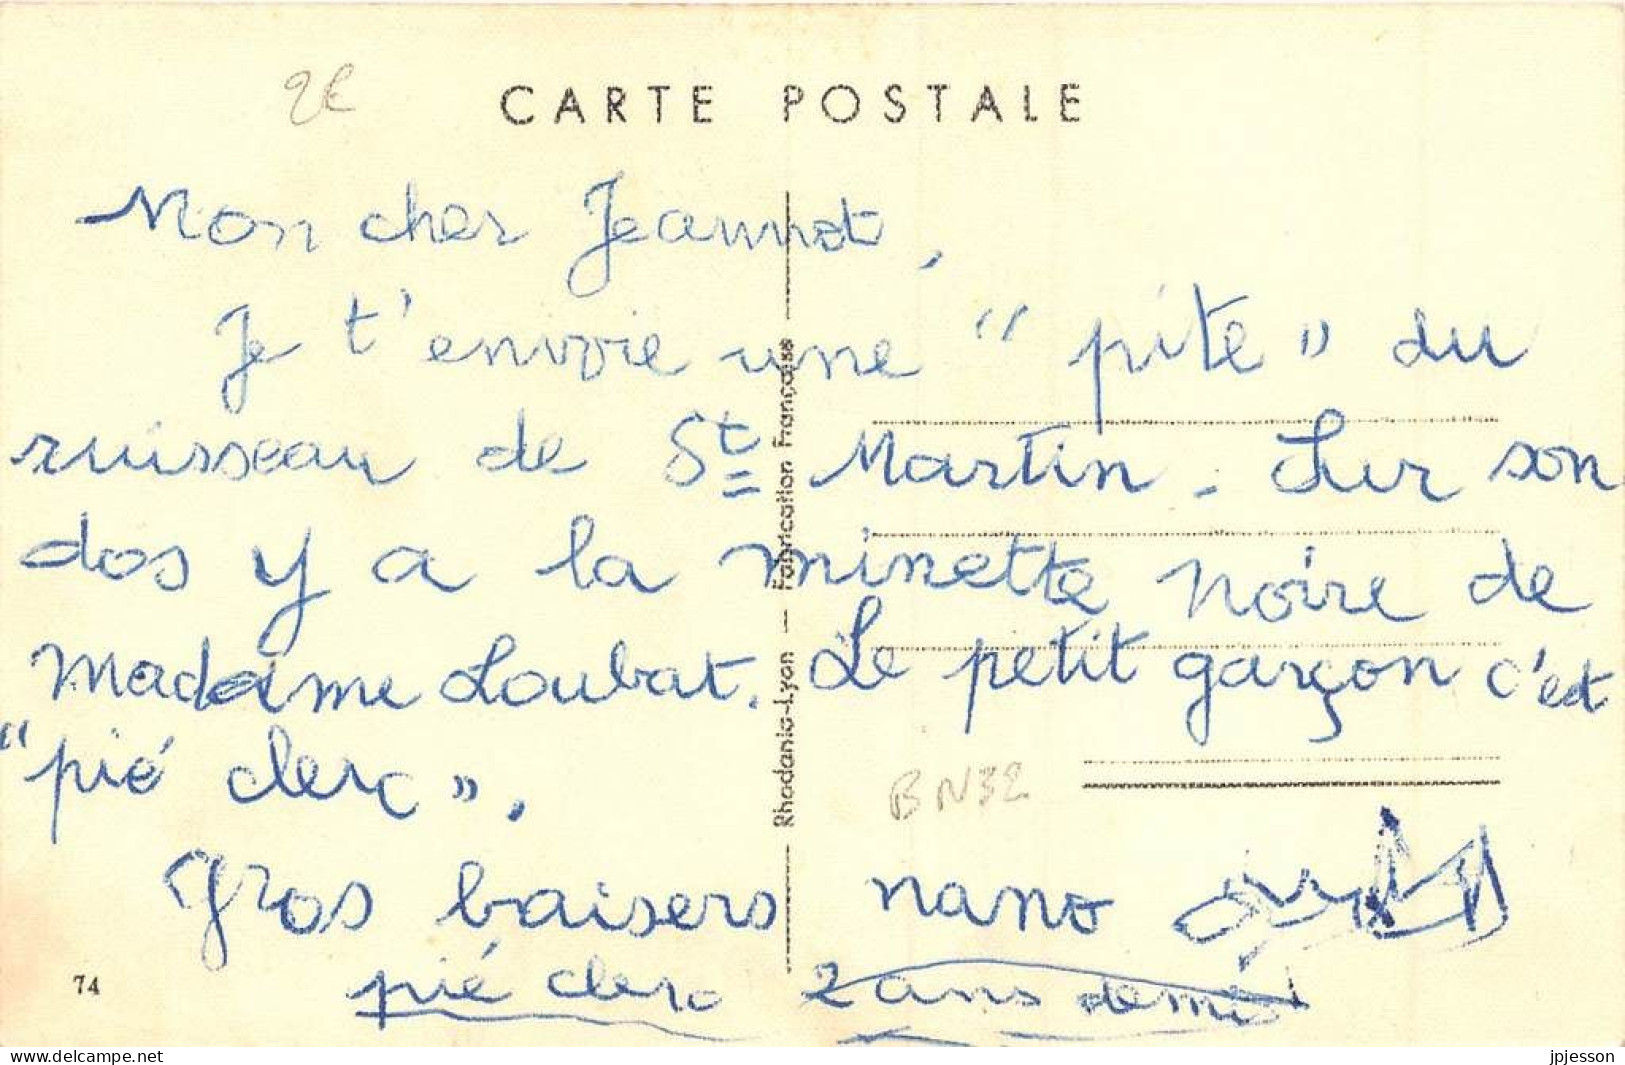 2€
CARTE POSTALE
Mon cher Jeannot,
Je t'envoie une "pite" du
ruisseau de St Martin. Sur son
dos y a la minette noire de
Madame Loubat. Le petit garçon c'est
"pié clerc".
Gros baisers nano
pié clerc 2 ans demi
BN32
74
Rhodania-Lyon — Fabrication Française
delcampe.net
jpjesson